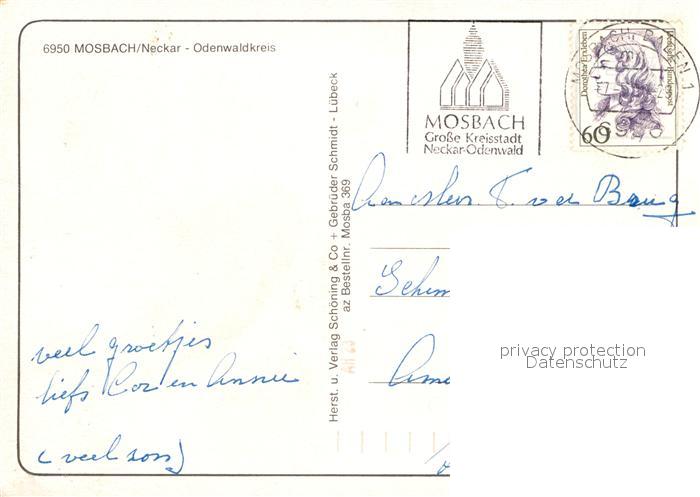 6950 MOSBACH/Neckar - Odenwaldkreis
MOSBACH
Große Kreisstadt
Neckar-Odenwald
MOSBACH, BADEN 1
6950
Dorothea Erxleben
Deutsche Bundespost
60
Herst. u. Verlag Schöning & Co + Gebrüder Schmidt - Lübeck
az Bestellnr. Mosba 369
Aan v/d
Schim
Ame
veel groetjes
liefs Cor en Annie
(veel zon)
privacy protection
Datenschutz